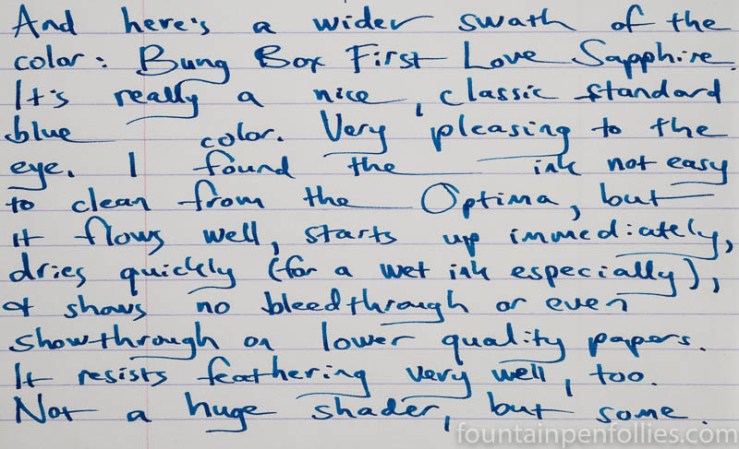 And here's a wider swath of the
color: Bung Box First Love Sapphire.
It's really a nice, classic standard
blue color. Very pleasing to the
eye. I found the ink not easy
to clean from the Optima, but
it flows well, starts up immediately,
dries quickly (for a wet ink especially),
& shows no bleedthrough or even
showthrough on lower quality papers.
It resists feathering very well, too.
Not a huge shader, but some.
fountainpenfollies.com